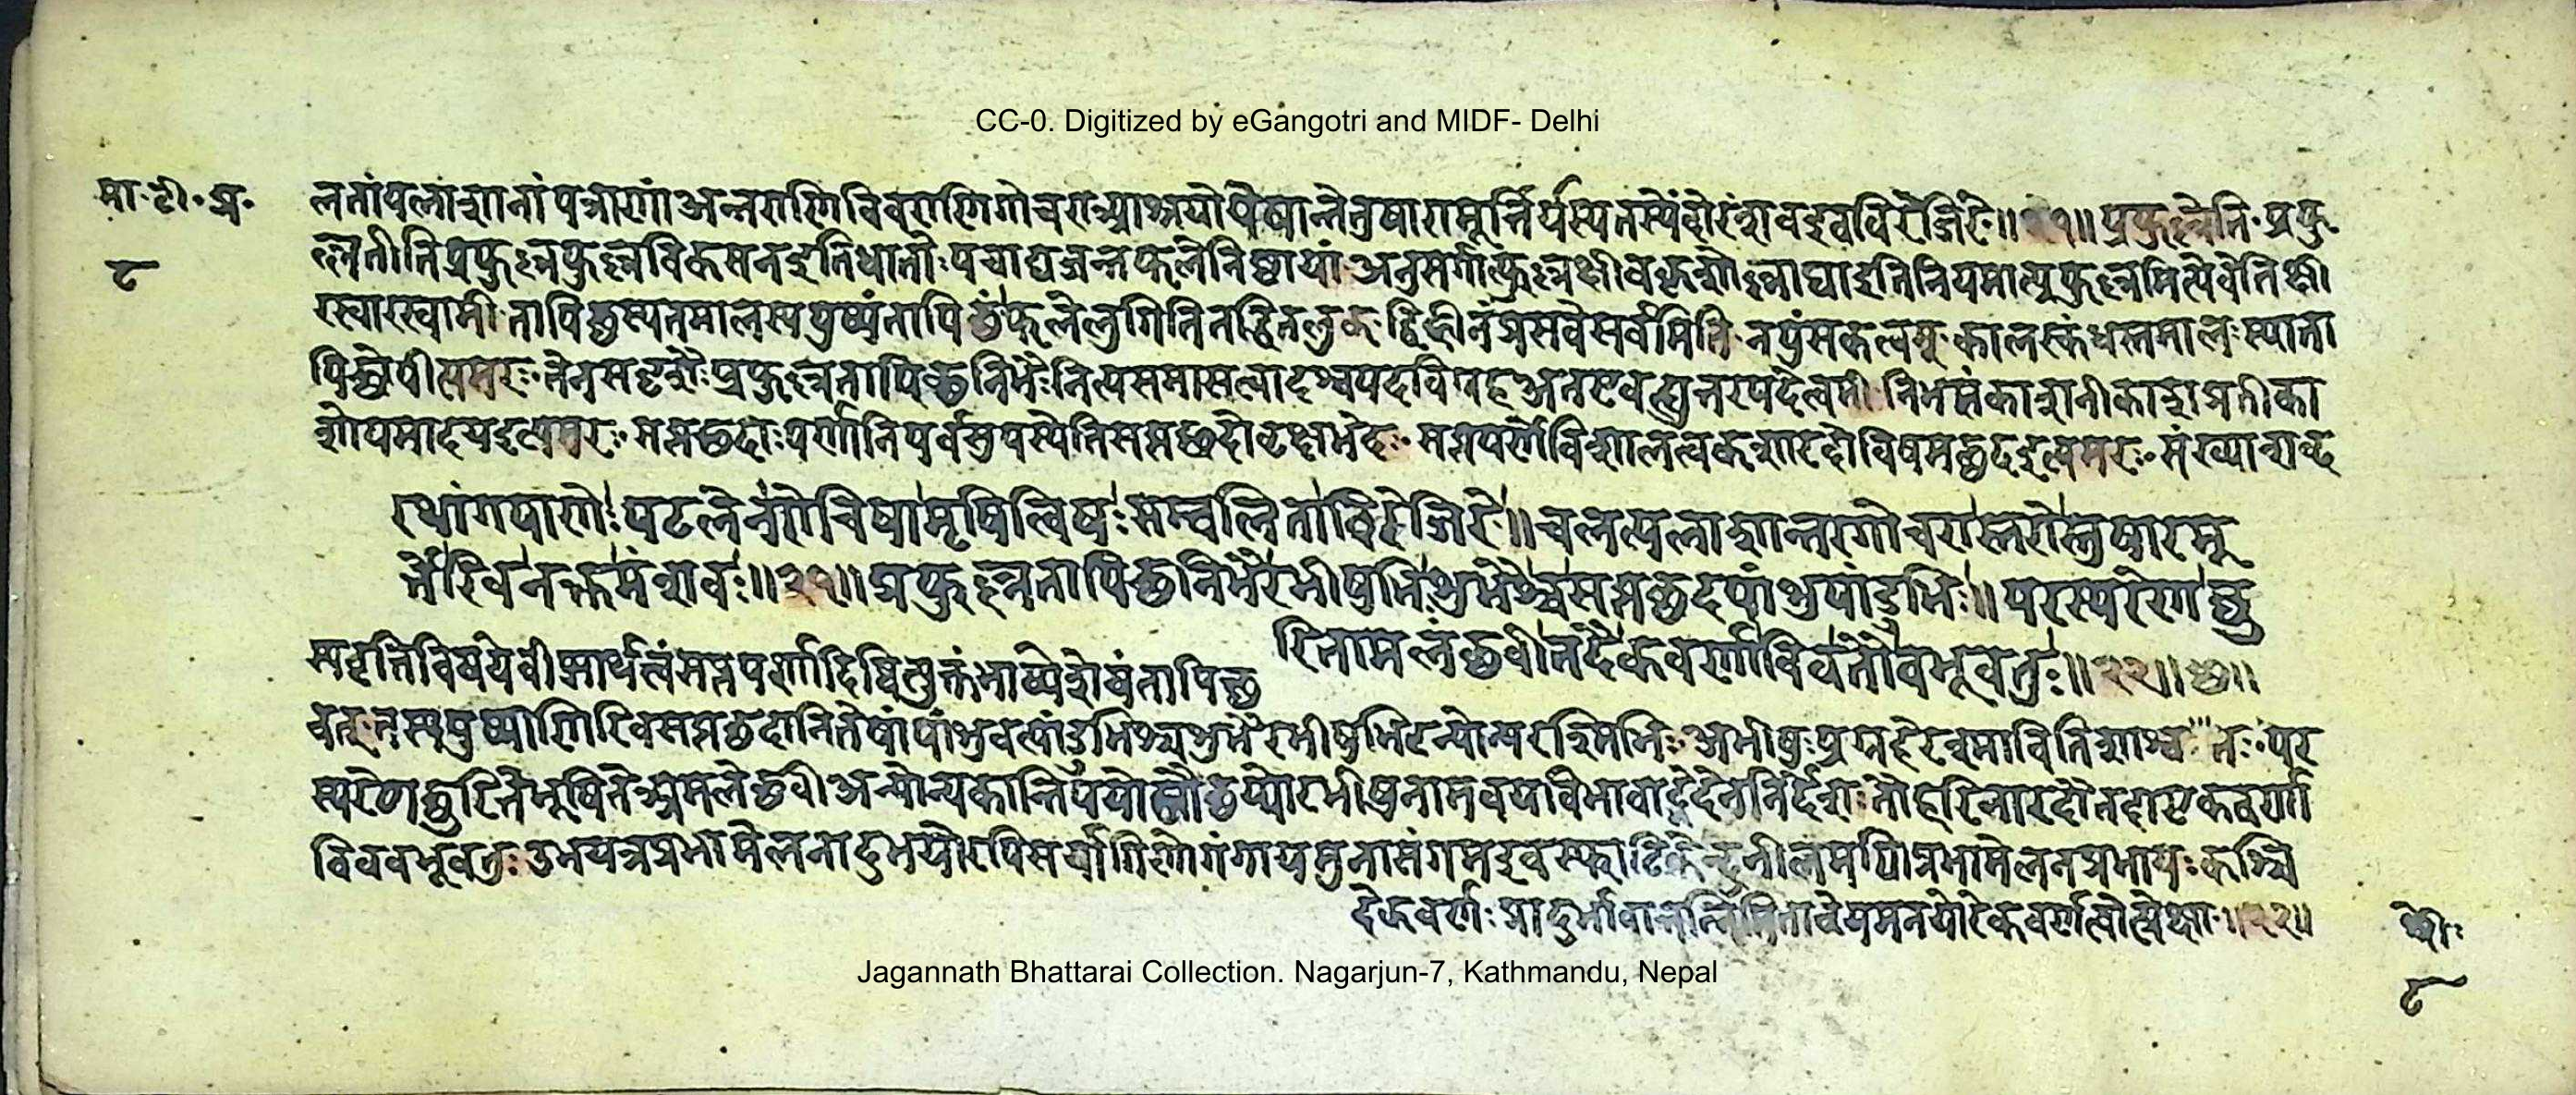 CC-0. Digitized by eGangotri and MIDF- Delhi
मा॰टी॰प्र॰
८
लतांपलाशानांपत्राणांअन्तराणिविवराणिगोचराआश्रयोयेषान्तेतुषारामूर्त्तिर्यस्यतस्येंदोरंशवइवविरेजिरे॥२१॥प्रफुल्लेति॰प्रफु
ल्लतीतिप्रफुल्लफुल्लविकसनइतिधातोःपचाद्यजन्त
रस्वारस्वामी तापिछस्यतमालस्यपुष्पंतापिछंफलेलुगितितद्धितलुक्द्विहीनंप्रसवेसर्वमिति नपुंसकत्वम् कालस्कंधस्तमालःस्यात्ता
पिछोपीत्यमरः॰तेनसदृशैःप्रफुल्लतापिछनिभैःनित्यसमासत्वादस्वपदविग्रहअतएव निभसंकाशनीकाशप्रतीका
शोपमादयइत्यमरः॰सप्तछदाःपर्णानिपर्वसुयस्येतिसप्तछदो सप्तपर्णोविशालत्वक्शारदोविषमछदइत्यमरः॰संख्याशब्द
रथांगपाणेःपटलेनरोचिषामृषित्विषःसम्वलिताविरेजिरे॥चलत्पलाशान्तरगोचरास्तरोस्तुषारमू
र्त्तेरिवनक्तमंशवः॥२१॥प्रफुल्लतापिछनिभैरभीषुभिःशुभैश्चसप्तछदपांशुपांडुभिः॥परस्परेणछु
रितामलछवीतदैकवर्णाविवतौवभूवतुः॥२२॥छ॥
स्यवृत्तिविषयेवीप्सार्थत्वंसप्तपर्णादिषित्युक्तंभाष्येशेषंतापिछ
वत्॰तस्यपुष्पाणि सप्तछदानितेषांपांशुवत्पांडुभिश्चशुभैरभीषुभिरन्योन्यरश्मिभिः अभीषुःप्रग्रहेरश्माविति पर
स्परेणछुरितेभूषितेअमलेछवीअन्योन्यकान्तिर्ययोस्तौ तौहरिनारदौतदाएकवर्णा
विवबभूवतुःउभयत्रप्रभामेलनादुभयोरपिसर्वांगीणोगंगायमुनासंगमइवस्फाटिकेन्द्रनीलमणिप्रभामेलनप्रभायःकश्चि
देकवर्णःप्रादुर्भावात्तन्निमित्तावेयमनयोरेकवर्णत्वोत्प्रेक्षा॥२२॥
श्रीः
८
Jagannath Bhattarai Collection. Nagarjun-7, Kathmandu, Nepal